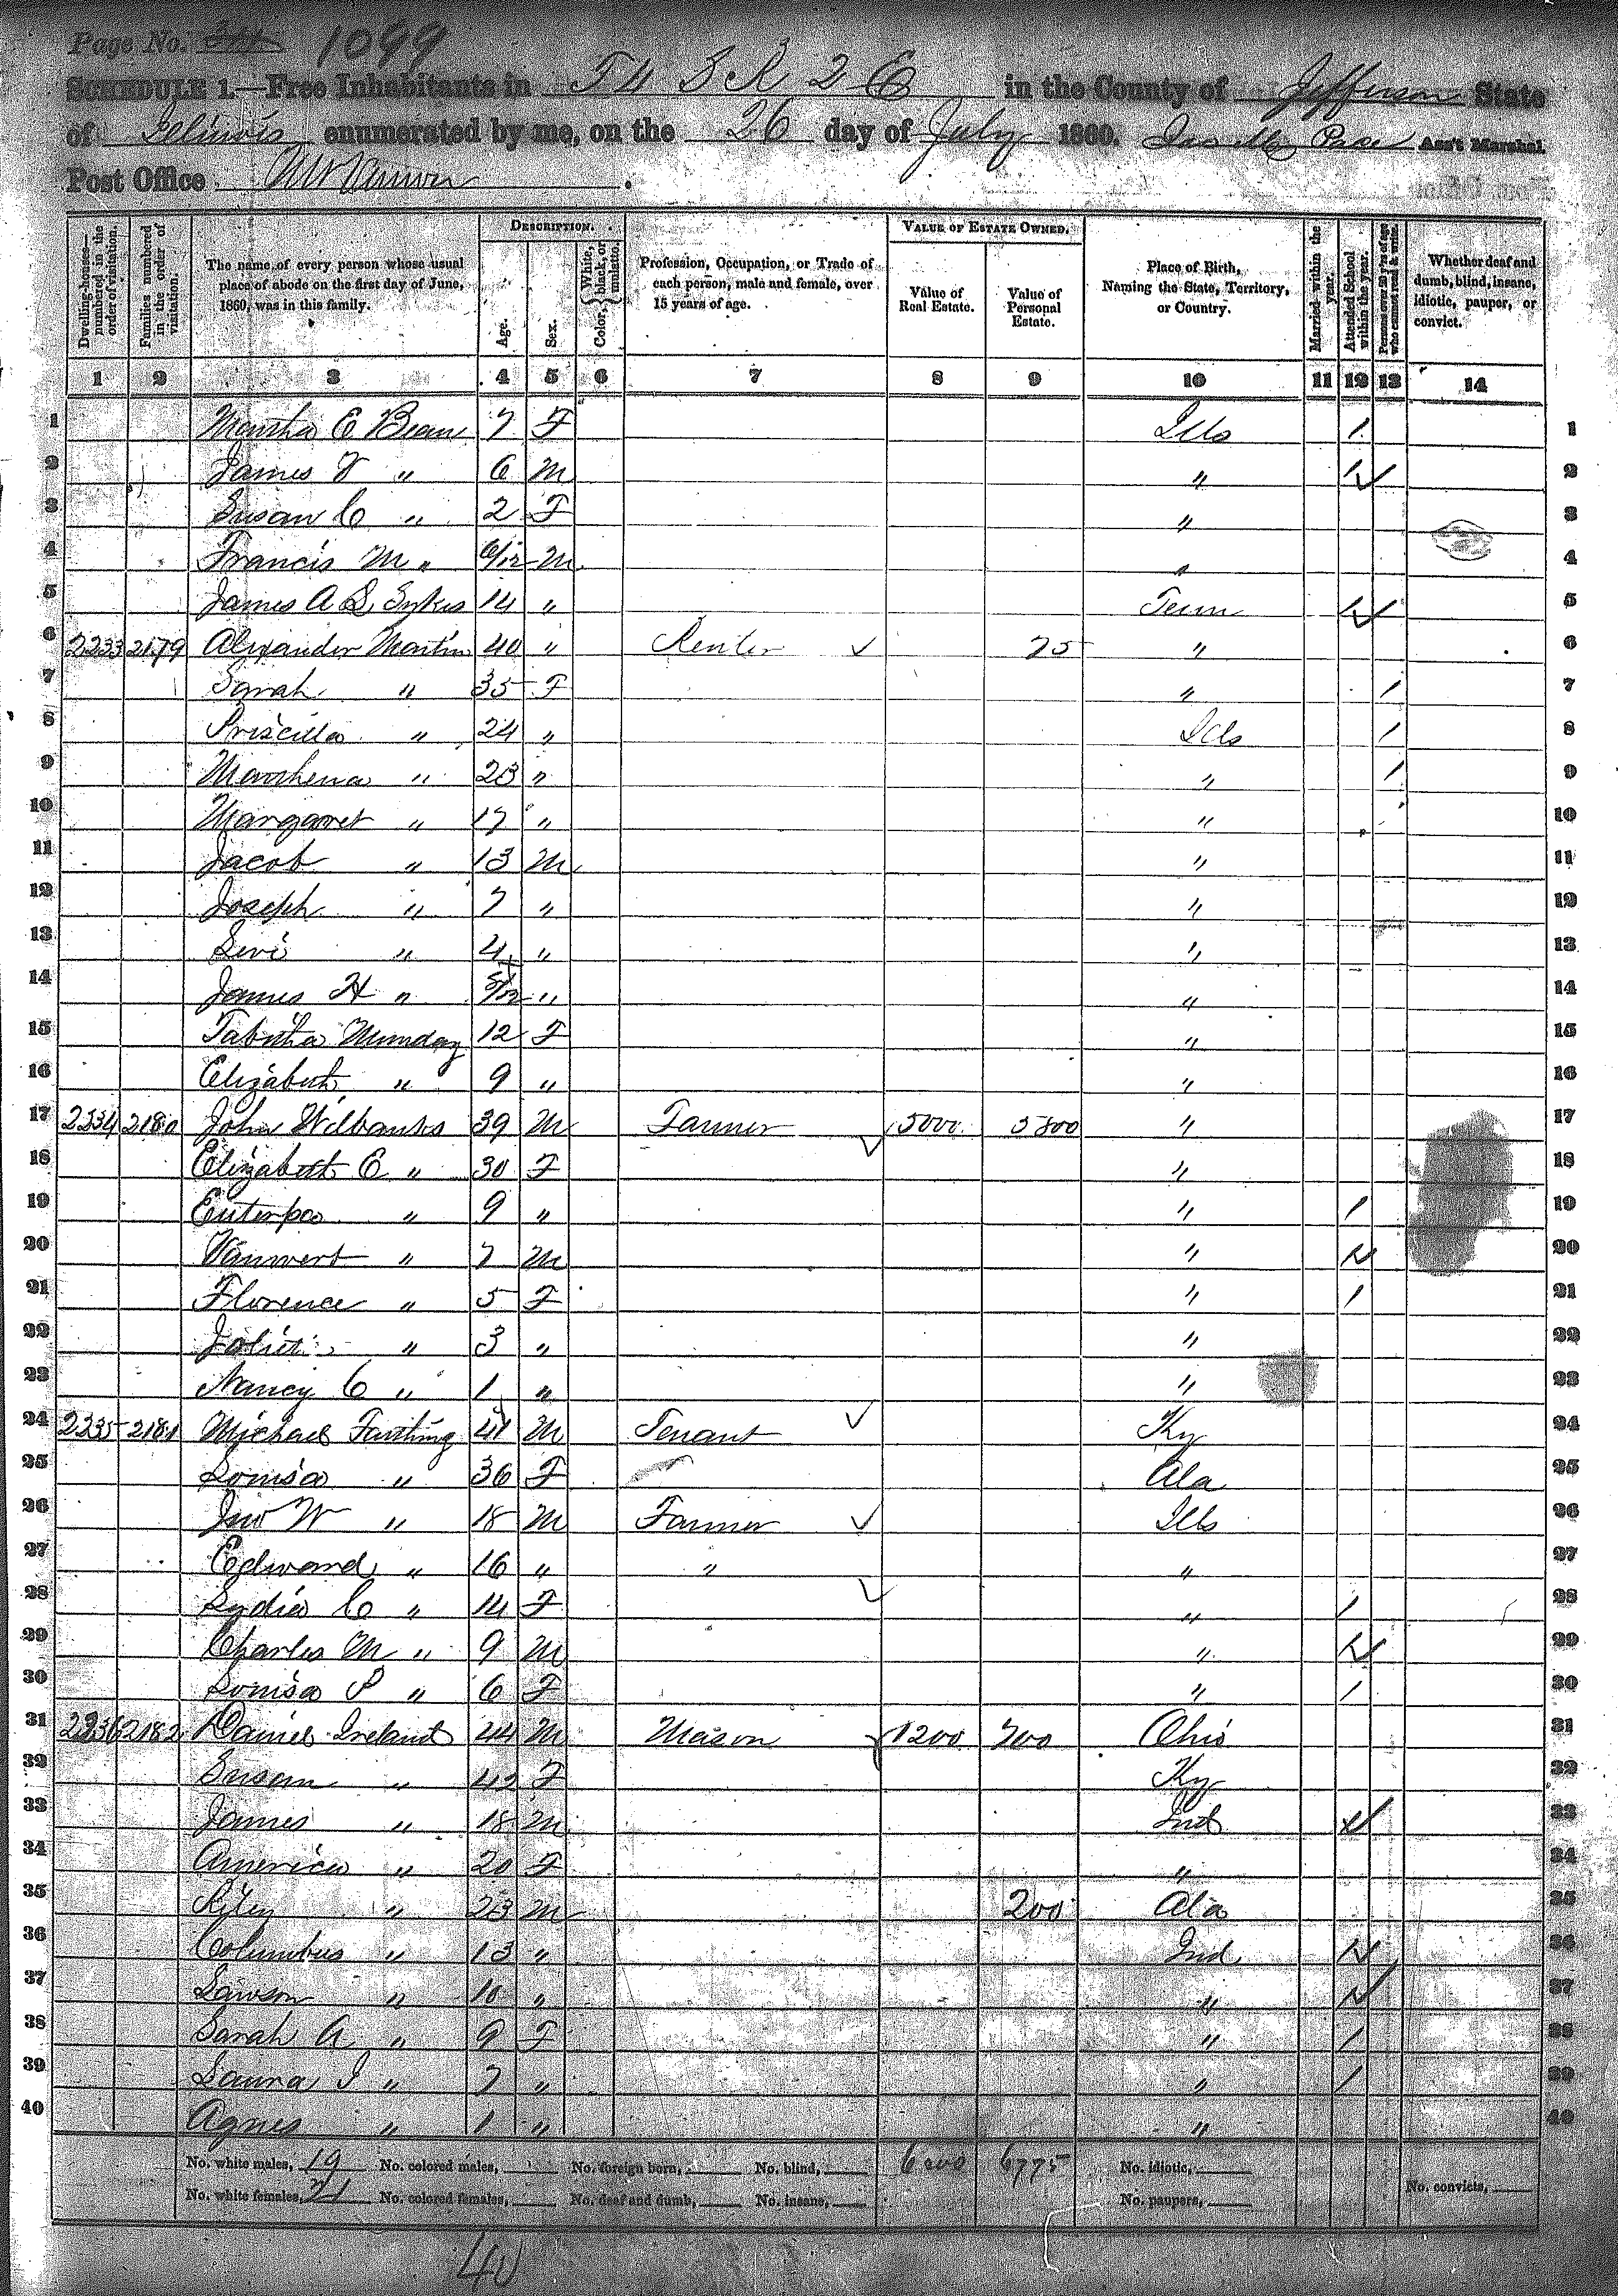 Page No. 1099
SCHEDULE 1.—Free Inhabitants in T 4 S R 2 E in the County of Jefferson State
of Illinois enumerated by me, on the 26 day of July 1860. Pace Ass't Marshal.
Post Office Mt Vernon.
DESCRIPTION. VALUE OF ESTATE OWNED.
Dwelling-houses—numbered in the order of visitation. Families numbered in the order of visitation. The name of every person whose usual place of abode on the first day of June, 1860, was in this family. Age. Sex. Color, {White, black, or mulatto. Profession, Occupation, or Trade of each person, male and female, over 15 years of age. Value of Real Estate. Value of Personal Estate. Place of Birth, Naming the State, Territory, or Country. Married within the year. Attended School within the year. Persons over 20 y'rs of age who cannot read & write. Whether deaf and dumb, blind, insane, idiotic, pauper, or convict.
1 2 3 4 5 6 7 8 9 10 11 12 13 14
1 Martha E Bean 7 F Ills 1 1
2 James " 6 M " 1 2
3 Susan C " 2 F " 3
4 Francis M " 6/12 M " 4
5 James A S Sykes 14 " Tenn 1 5
6 2233 2179 Alexander Martin 40 " Renter 75 " 6
7 Sarah " 35 F " 1 7
8 Priscilla " 24 " Ills 1 8
9 " 23 " " 1 9
10 Margaret " 17 " " 10
11 Jacob " 13 M " 11
12 Joseph " 7 " " 12
13 Levi " 4 " " 13
14 James H " 5/12 " " 14
15 Tabitha Munday 12 F " 15
16 Elizabeth " 9 " " 16
17 2234 2180 John Wilbanks 39 M Farmer 5000 5800 " 17
18 Elizabeth E " 30 F " 18
19 Euterpa " 9 " " 1 19
20 Vanwert " 7 M " 1 20
21 Florence " 5 F " 1 21
22 Joliet " 3 " " 22
23 Nancy C " 1 " " 23
24 2235 2181 Michael Farthing 41 M Tenant Ky 24
25 Louisa " 36 F Ala 25
26 Jno W " 18 M Farmer Ills 26
27 Edward " 16 " " " 27
28 Lydia C " 14 F " 1 28
29 Charles M " 9 M " 1 29
30 Louisa P " 6 F " 1 30
31 2236 2182 Daniel Ireland 44 M Mason 1200 700 Ohio 31
32 Susan " 42 F Ky 32
33 James " 18 M Ind 1 33
34 America " 20 F " 34
35 Riley " 23 M 200 Ala 35
36 Columbus " 13 " Ind 1 36
37 Lawson " 10 " " 1 37
38 Sarah A " 9 F " 1 38
39 Laura J " 7 " " 1 39
40 Agnes " 1 " " 40
No. white males, 19 No. colored males, No. foreign born, No. blind, 6200 6775 No. idiotic,
No. white females, 21 No. colored females, No. deaf and dumb, No. insane, No. paupers, No. convicts,
40